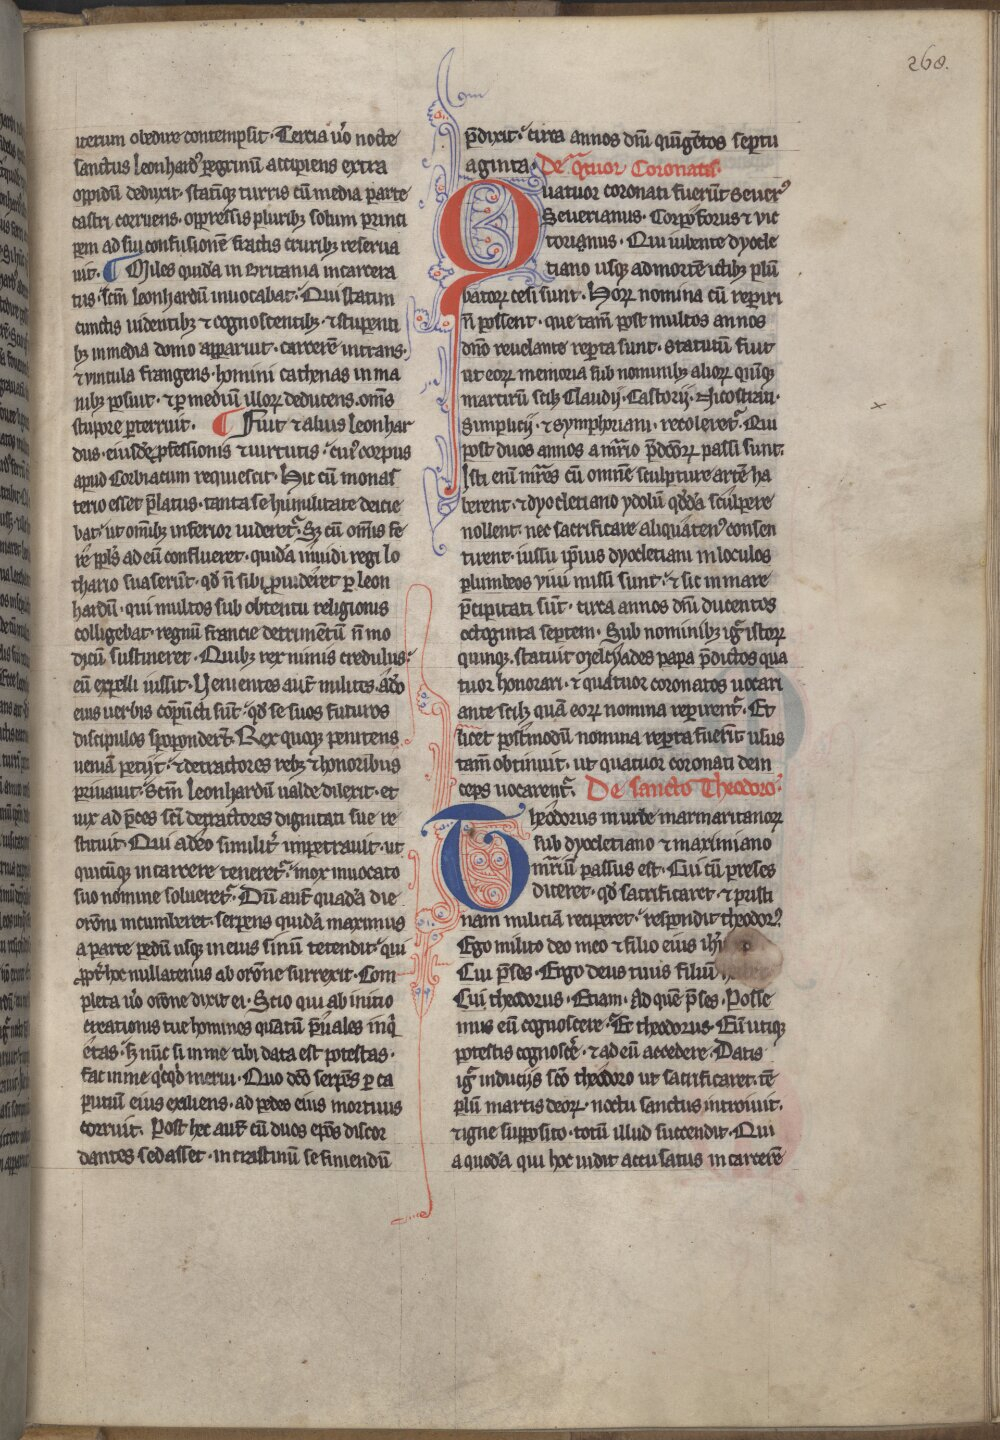 268.
iterum obedire contempsit· Tercia ůo nocte
sanctus leonhardꝰ pegrinū accipiens extra
oppidū deduxit· statīqꝫ turris cū media parte
castri corruens· oppressis pluribꝫ solum princi
pem ad sui confusionē fractis cruribꝫ reserua
uit· ¶ Miles quidā in Britania incarcera
tus· scm̄ leonhardū inuocabat· Qui statim
cunctis uidentibꝫ ⁊ cognoscentibꝫ· ⁊ stupenti
bꝫ in media domo apparuit· carcerē intrans·
⁊ vincula frangens· homini cathenas in ma
nibꝫ posuit· ⁊ p mediū illoꝝ deducens· om̄s
stupore perterruit· ¶ Fuit ⁊ alius leonhar
dus· eiusdē pfessionis ⁊ uirtutis· cuiꝰ corpus
apud Corbiacum requiescit· Hic cū monas
terio esset p̄latus· tanta se humilitate deicie
bat· ut om̄ibꝫ inferior uideretᷣ· Sꝫ cū om̄is fe
re ppl̄s ad eū conflueret· quidā inuidi regi lo
thario suaserūt· qd̄ n̄ sibi puideret p leon
hardū· qui multos sub obtentu religionis
colligebat· regnū francie detrimentū n̄ mo
dicū sustineret· Quibꝫ rex nimis credulus·
eū expelli iussit· Venientes aut̄ milites· adeo
eius uerbis cōpūcti sūt· qd̄ se suos futuros
discipulos spoponder̄t· Rex quoqꝫ penitens
ueniā petijt· ⁊ detractores rebꝫ ⁊ honoribus
priuauit· Scm̄ leonhardū ualde dilexit· et
uix ad p̄ces sci detractores dignitati sue re
stituit· Qui adeo similit̄ impetrauit· ut
quicūqꝫ in carcere teneretᷣ· mox inuocato
suo nomine solueretᷣ· Dū aut̄ quadā die
orōni incumberet· serpens quidā maximus
a parte pedū usqꝫ in eius sinū tetendit· qui
ppt̄ hoc nullatenus ab orōne surrexit· Com
pleta ůo orōne dixit ei· Scio qui ab initio
creationis tue homines quātū p̄uales inq̇
etas· sꝫ nūc si in me tibi data est potestas·
fac in me q̇cq̇d merui· Quo dc̄o serpēs p ca
putiū eius exiliens· ad pedes eius mortuus
corruit· Post hec aut̄ cū duos ep̄os discor
dantes sedasset· in crastinū se finiendū
p̄dixit· circa annos dn̄i quīgētos septu
aginta· De q̄tuor Coronatis·
Quatuor coronati fuerūt Seuerꝰ
Seuerianus· Corpoforus ⁊ vic
torianus· Qui iubente dyocle
tiano usqꝫ ad mortē ictibꝫ plū
batoꝝ cesi sunt· Hoꝝ nomina cū reperiri
n̄ possent· que tam̄ post multos annos
dn̄o reuelante repta sunt· statutū fuit
ut eoꝝ memoria sub nominibꝫ alioꝝ quīqꝫ
martirū scilꝫ Claudij· Castorij· Nicostrati·
Simplicij· ⁊ symphoriani· recoleretᷣ· Qui
post duos annos a m̄rio p̄dc̄oꝝ passi sunt·
Isti enī m̄res cū omnē sculpture artē ha
berent· ⁊ dyocletiano ydolū qd̄dā sculpere
nollent· nec sacrificare aliquatenꝰ consen
tirent· iussu ip̄ius dyocletiani in loculos
plumbeos viui missi sunt· ⁊ sic in mare
p̄cipitati sūt· circa annos dn̄i ducentos
octoginta septem· Sub nominibꝫ igᷣ istoꝝ
quinqꝫ statuit Melchyades papa p̄dictos qua
tuor honorari· ⁊ quatuor coronatos uocari
ante scilꝫ quā eoꝝ nomina repirentᷣ· Et
licet postmodū nomina repta fuerīt usus
tam̄ obtinuit· ut quatuor coronati dein
ceps uocarentᷣ· De sancto Theodoro·
Theodorus in urbe marmaritanoꝝ
sub dyocletiano ⁊ maximiano
m̄rīū passus est· Cui cū preses
diceret· qd̄ sacrificaret· ⁊ pristi
nam miliciā reciperet· respondit theodorꝰ
Ego milito deo meo ⁊ filio eius ih̄u
Cui p̄ses· Ergo deus tuus filiū
Cui theodorus· Etiam· Ad quē p̄ses· Posse
mus eū cognoscere· Et theodorus· Eū utiqꝫ
potestis cognosce᷑· ⁊ ad eū accedere· Datis
igᷣ inducijs sc̄o theodoro ut sacrificaret· tē
plū martis deoꝝ· noctu sanctus introiuit·
⁊ igne supposito· totū illud succendit· Qui
a quodā qui hoc uidit accusatus in carcerē